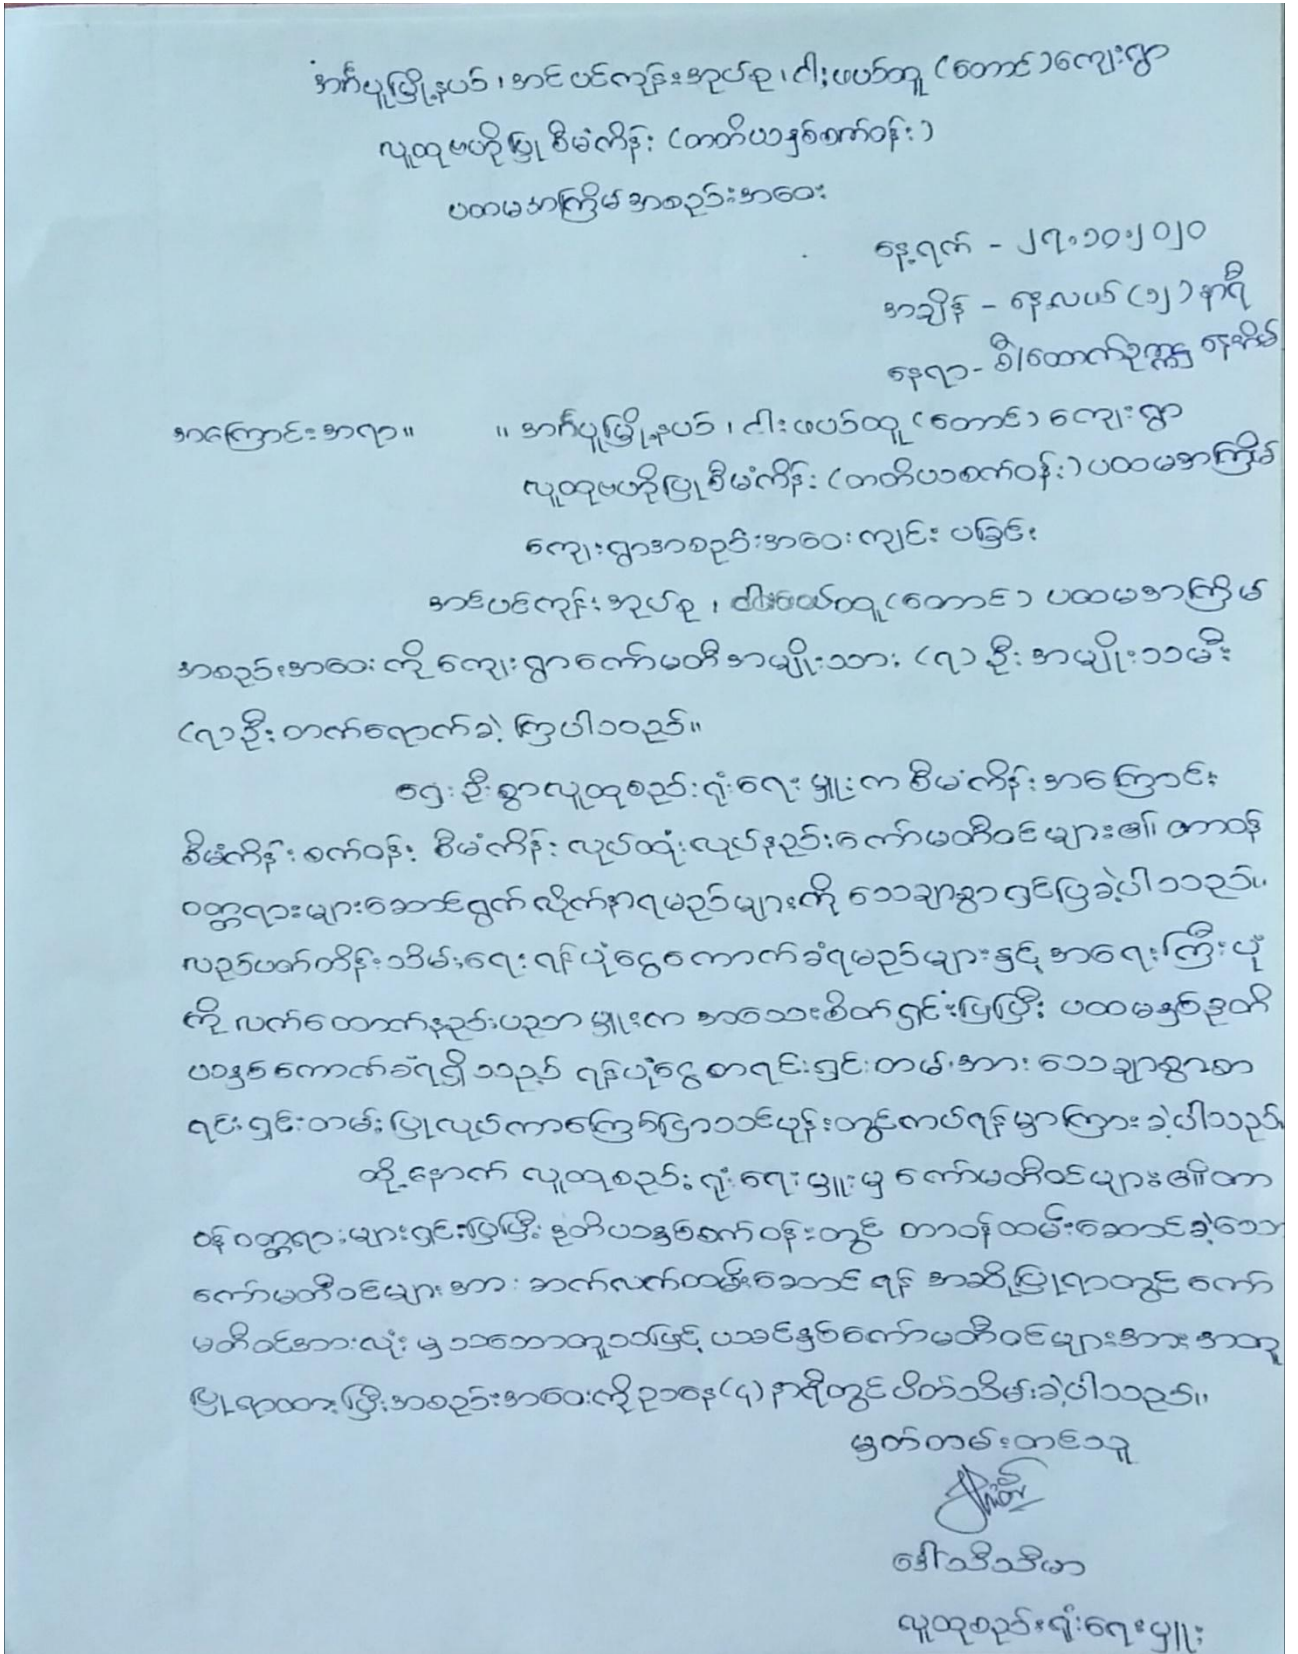 အင်္ဂပူမြို့နယ်၊ အင်ပင်ကုန်းအုပ်စု၊ ငါးဖယ်ထူ (တောင်) ကျေးရွာ
လူထုဗဟိုပြုစီမံကိန်း (တတိယနှစ်စက်ဝန်း)
ပထမအကြိမ်အစည်းအဝေး
နေ့ရက် - ၂၇.၁၀.၂၀၂၀
အချိန် - နေ့လယ် (၁၂) နာရီ
နေရာ - စီ/ထောက်ဥက္ကဋ္ဌ နေအိမ်
အကြောင်းအရာ။ ။ အင်္ဂပူမြို့နယ်၊ ငါးဖယ်ထူ (တောင်) ကျေးရွာ
လူထုဗဟိုပြုစီမံကိန်း (တတိယစက်ဝန်း) ပထမအကြိမ်
ကျေးရွာအစည်းအဝေးကျင်းပခြင်း
အင်ပင်ကုန်းအုပ်စု၊ ငါးဖယ်ထူ (တောင်) ပထမအကြိမ်
အစည်းအဝေးကို ကျေးရွာကော်မတီအမျိုးသား (၇) ဦး အမျိုးသမီး
(၇) ဦး တက်ရောက်ခဲ့ကြပါသည်။
ရှေးဦးစွာလူထုစည်းရုံးရေးမှူးက စီမံကိန်းအကြောင်း
စီမံကိန်းစက်ဝန်း စီမံကိန်းလုပ်ထုံးလုပ်နည်းကော်မတီဝင်များ၏ တာဝန်
ဝတ္တရားများဆောင်ရွက်လိုက်နာရမည်များကို သေချာစွာရှင်ပြခဲ့ပါသည်။
လည်ပတ်ထိန်းသိမ်းရေးရန်ပုံငွေကောက်ခံရမည်များနှင့် အရေးကြီးပုံ
ကို လက်ထောက်နည်းပညာမှူးက အသေးစိတ်ရှင်းပြပြီး ပထမနှစ်ဒုတိ
ယနှစ်ကောက်ခံရရှိသည့် ရန်ပုံငွေစာရင်းရှင်းတမ်းအား သေချာစွာစာ
ရင်းရှင်းတမ်းပြုလုပ်ကာကြော်ငြာသင်ပုန်းတွင်ကပ်ရန်မှာကြားခဲ့ပါသည်
ထို့နောက် လူထုစည်းရုံးရေးမှူးမှ ကော်မတီဝင်များ၏တာ
ဝန်ဝတ္တရားများရှင်းပြပြီး ဒုတိယနှစ်စက်ဝန်းတွင် တာဝန်ထမ်းဆောင်ခဲ့သော
ကော်မတီဝင်များအား ဆက်လက်ထမ်းဆောင်ရန် အဆိုပြုရာတွင် ကော်
မတီဝင်အားလုံးမှ သဘောတူသဖြင့် ယခင်နှစ်ကော်မတီဝင်များအား အတူ
ပြုရာထားပြီး အစည်းအဝေးကိုညနေ (၄) နာရီတွင်ပိတ်သိမ်းခဲ့ပါသည်။
မှတ်တမ်းတင်သူ
ဒေါ်သီသီမာ
လူထုစည်းရုံးရေးမှူး